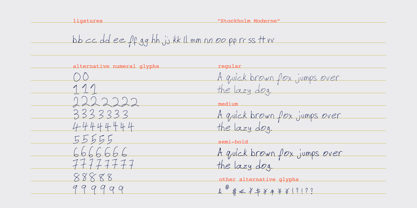 ligatures
"Stockholm Moderne"
bb cc dd ee ff gg hh jj kk ll mm nn oo pp rr ss tt vv
alternative numeral glyphs
00
111
2222222
3333333
44444444
55555
6666666
77777777
88888
999999
regular
A quick brown fox jumps over
the lazy dog.
medium
A quick brown fox jumps over
the lazy dog.
semi-bold
A quick brown fox jumps over
the lazy dog.
other alternative glyphs
! ? ! ? ?